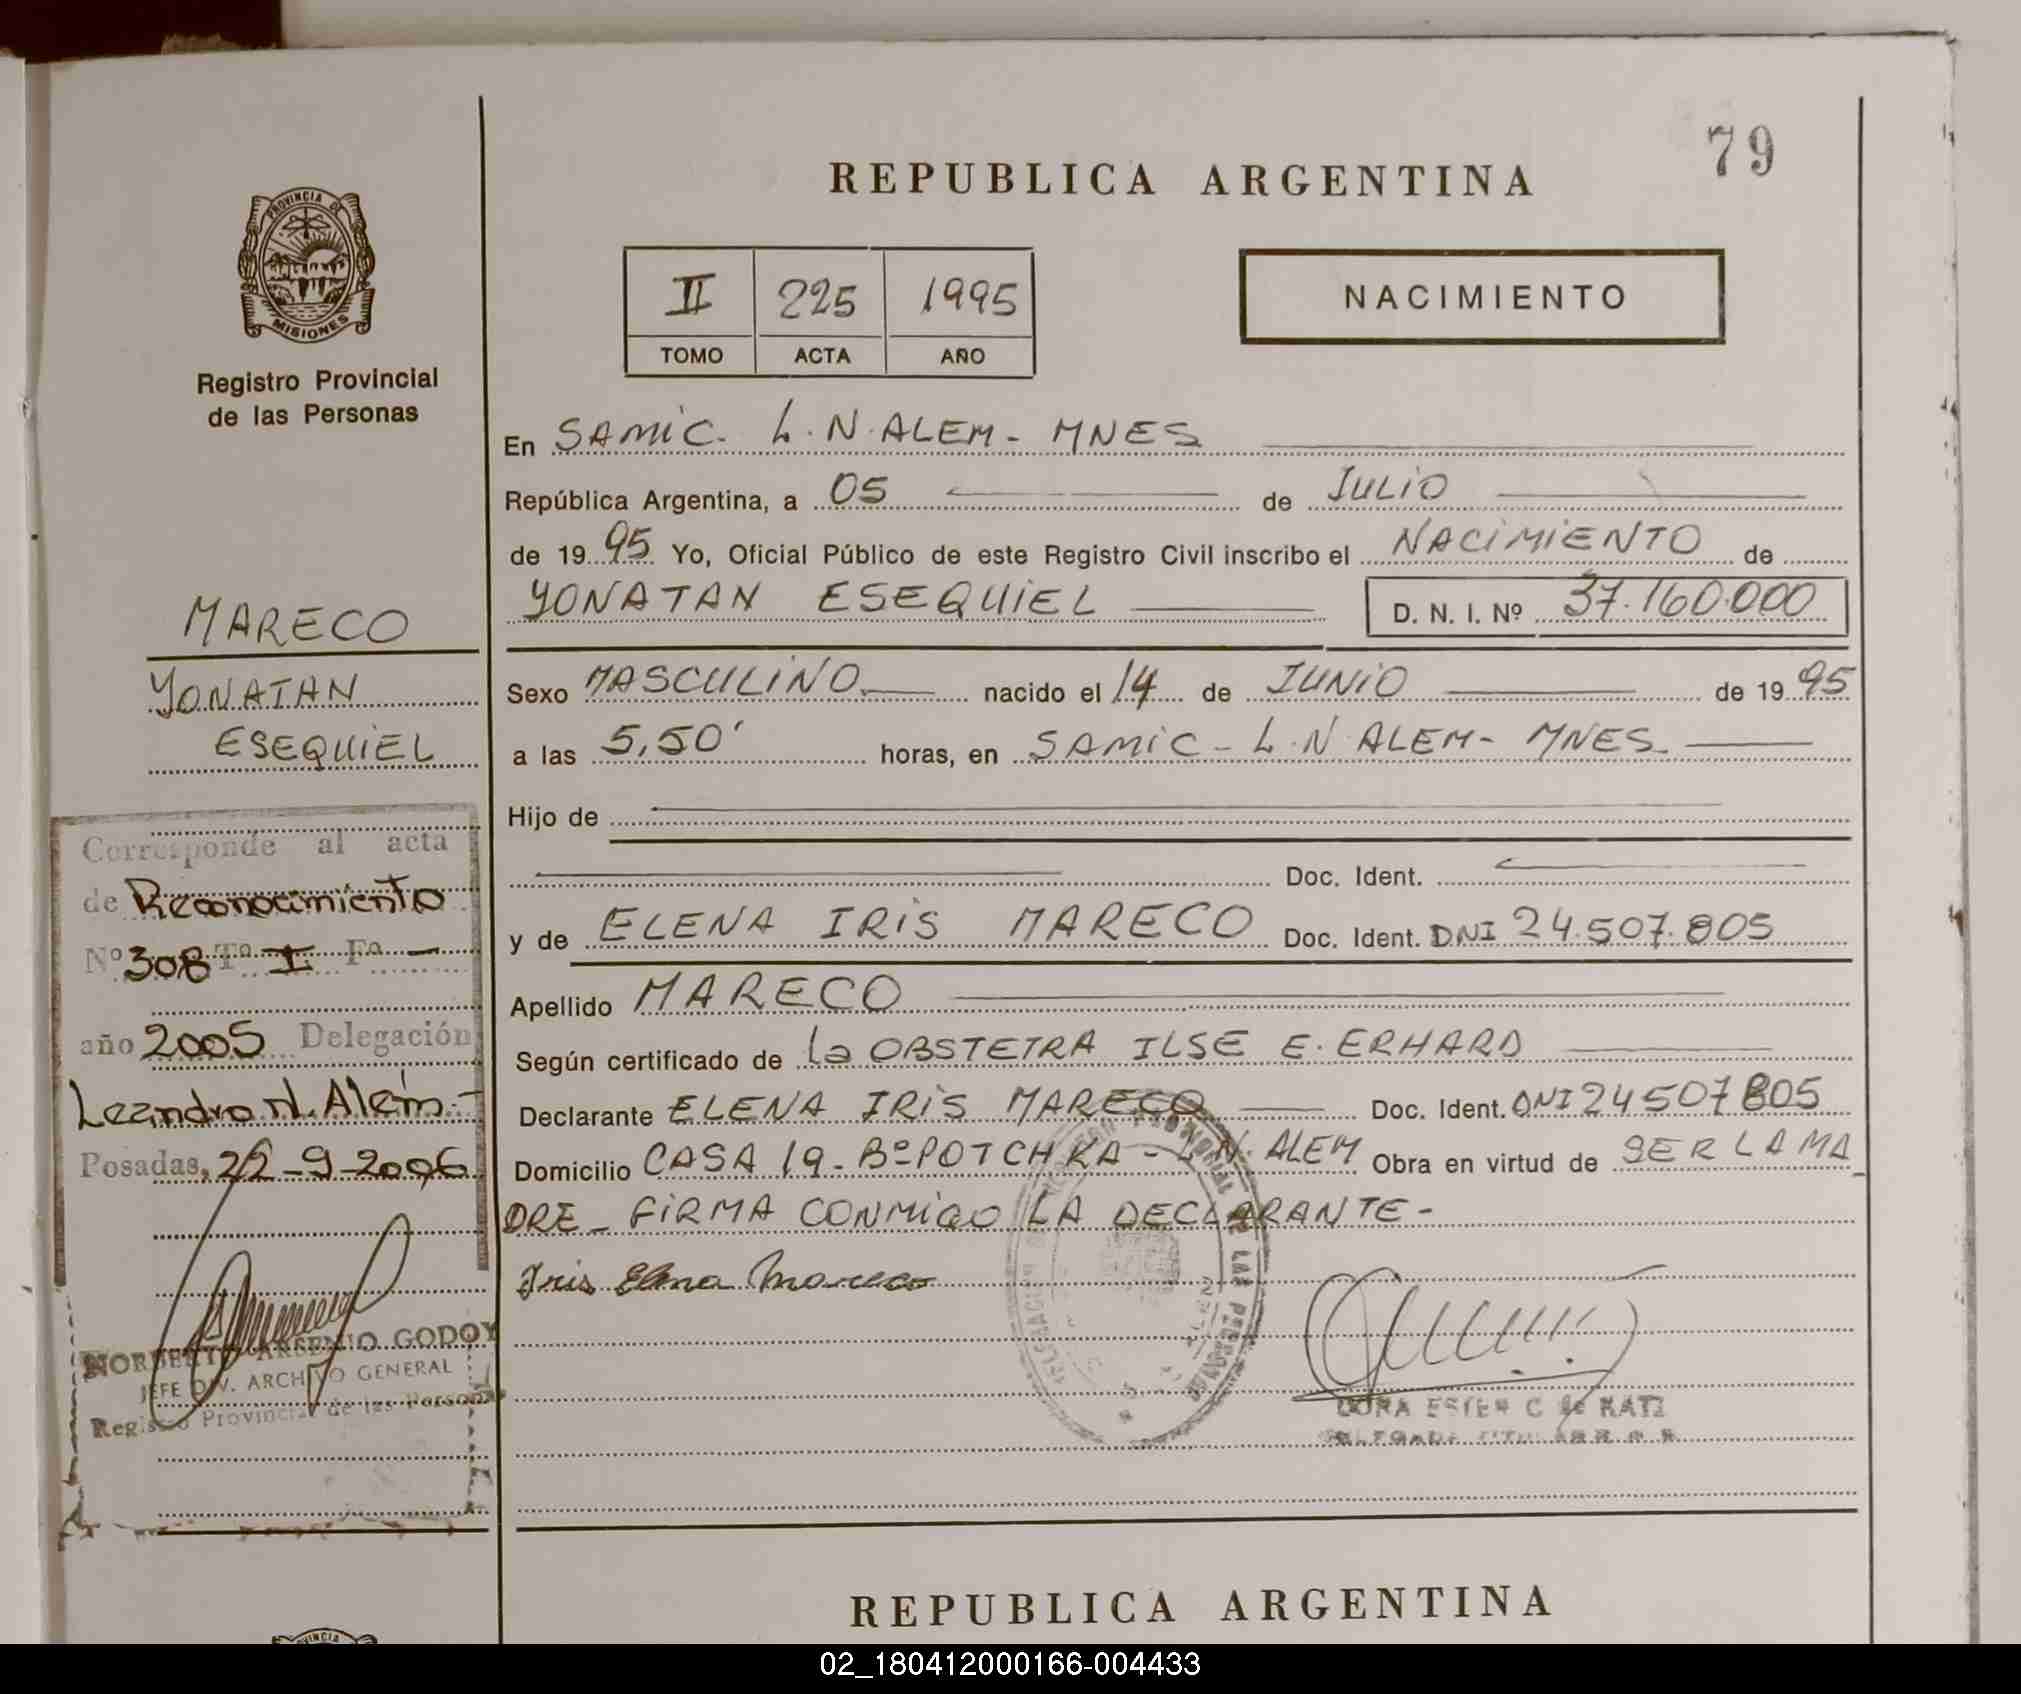 79
REPUBLICA ARGENTINA
PROVINCIA DE
MISIONES
Registro Provincial
de las Personas
II 225 1995
TOMO ACTA AÑO
NACIMIENTO
En SAMIC. L.N.ALEM- MNES
República Argentina, a 05 de JULIO
de 1995 Yo, Oficial Público de este Registro Civil inscribo el NACIMIENTO de
YONATAN ESEQUIEL D. N. I. Nº 37.160.000
Sexo MASCULINO nacido el 14 de JUNIO de 1995
a las 5,50' horas, en SAMIC - L.N ALEM- MNES.
Hijo de
Doc. Ident.
y de ELENA IRIS MARECO Doc. Ident. DNI 24.507.805
Apellido MARECO
Según certificado de la OBSTETRA ILSE E. ERHARD
Declarante ELENA IRIS MARECO Doc. Ident. DNI 24507805
Domicilio CASA 19 - Bº POTCHKA - L N. ALEM Obra en virtud de SER LA MA
DRE - FIRMA CONMIGO LA DECLARANTE -
Iris Elena Mareco
MARECO
YONATAN
ESEQUIEL
Corresponde al acta
de Reconocimiento
Nº 308 Tº I Fº -
año 2005 Delegación
Leandro N. Alem -
Posadas, 22-9-2006
NORBERTO ARSENIO GODOY
JEFE DIV. ARCHIVO GENERAL
Registro Provincial de las Personas
REPUBLICA ARGENTINA
02_180412000166-004433